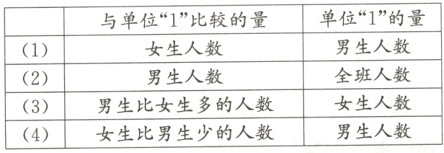 与单位“1”比较的量 单位“1”的量
(1) 女生人数 男生人数
(2) 男生人数 全班人数
(3) 男生比女生多的人数 女生人数
(4) 女生比男生少的人数 男生人数